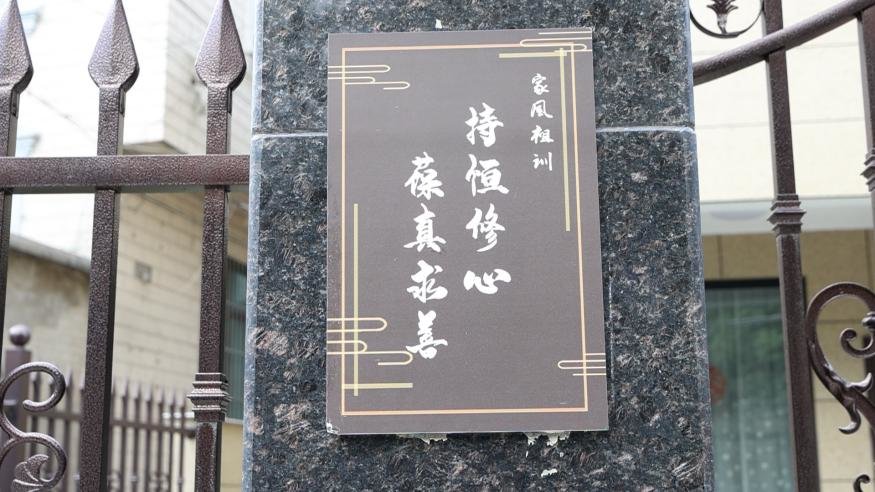 家风祖训
持恒修心
葆真求善